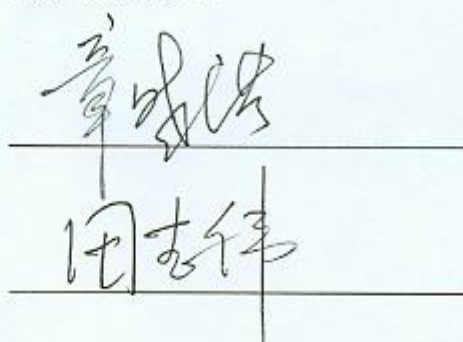 章晓洪
田志伟